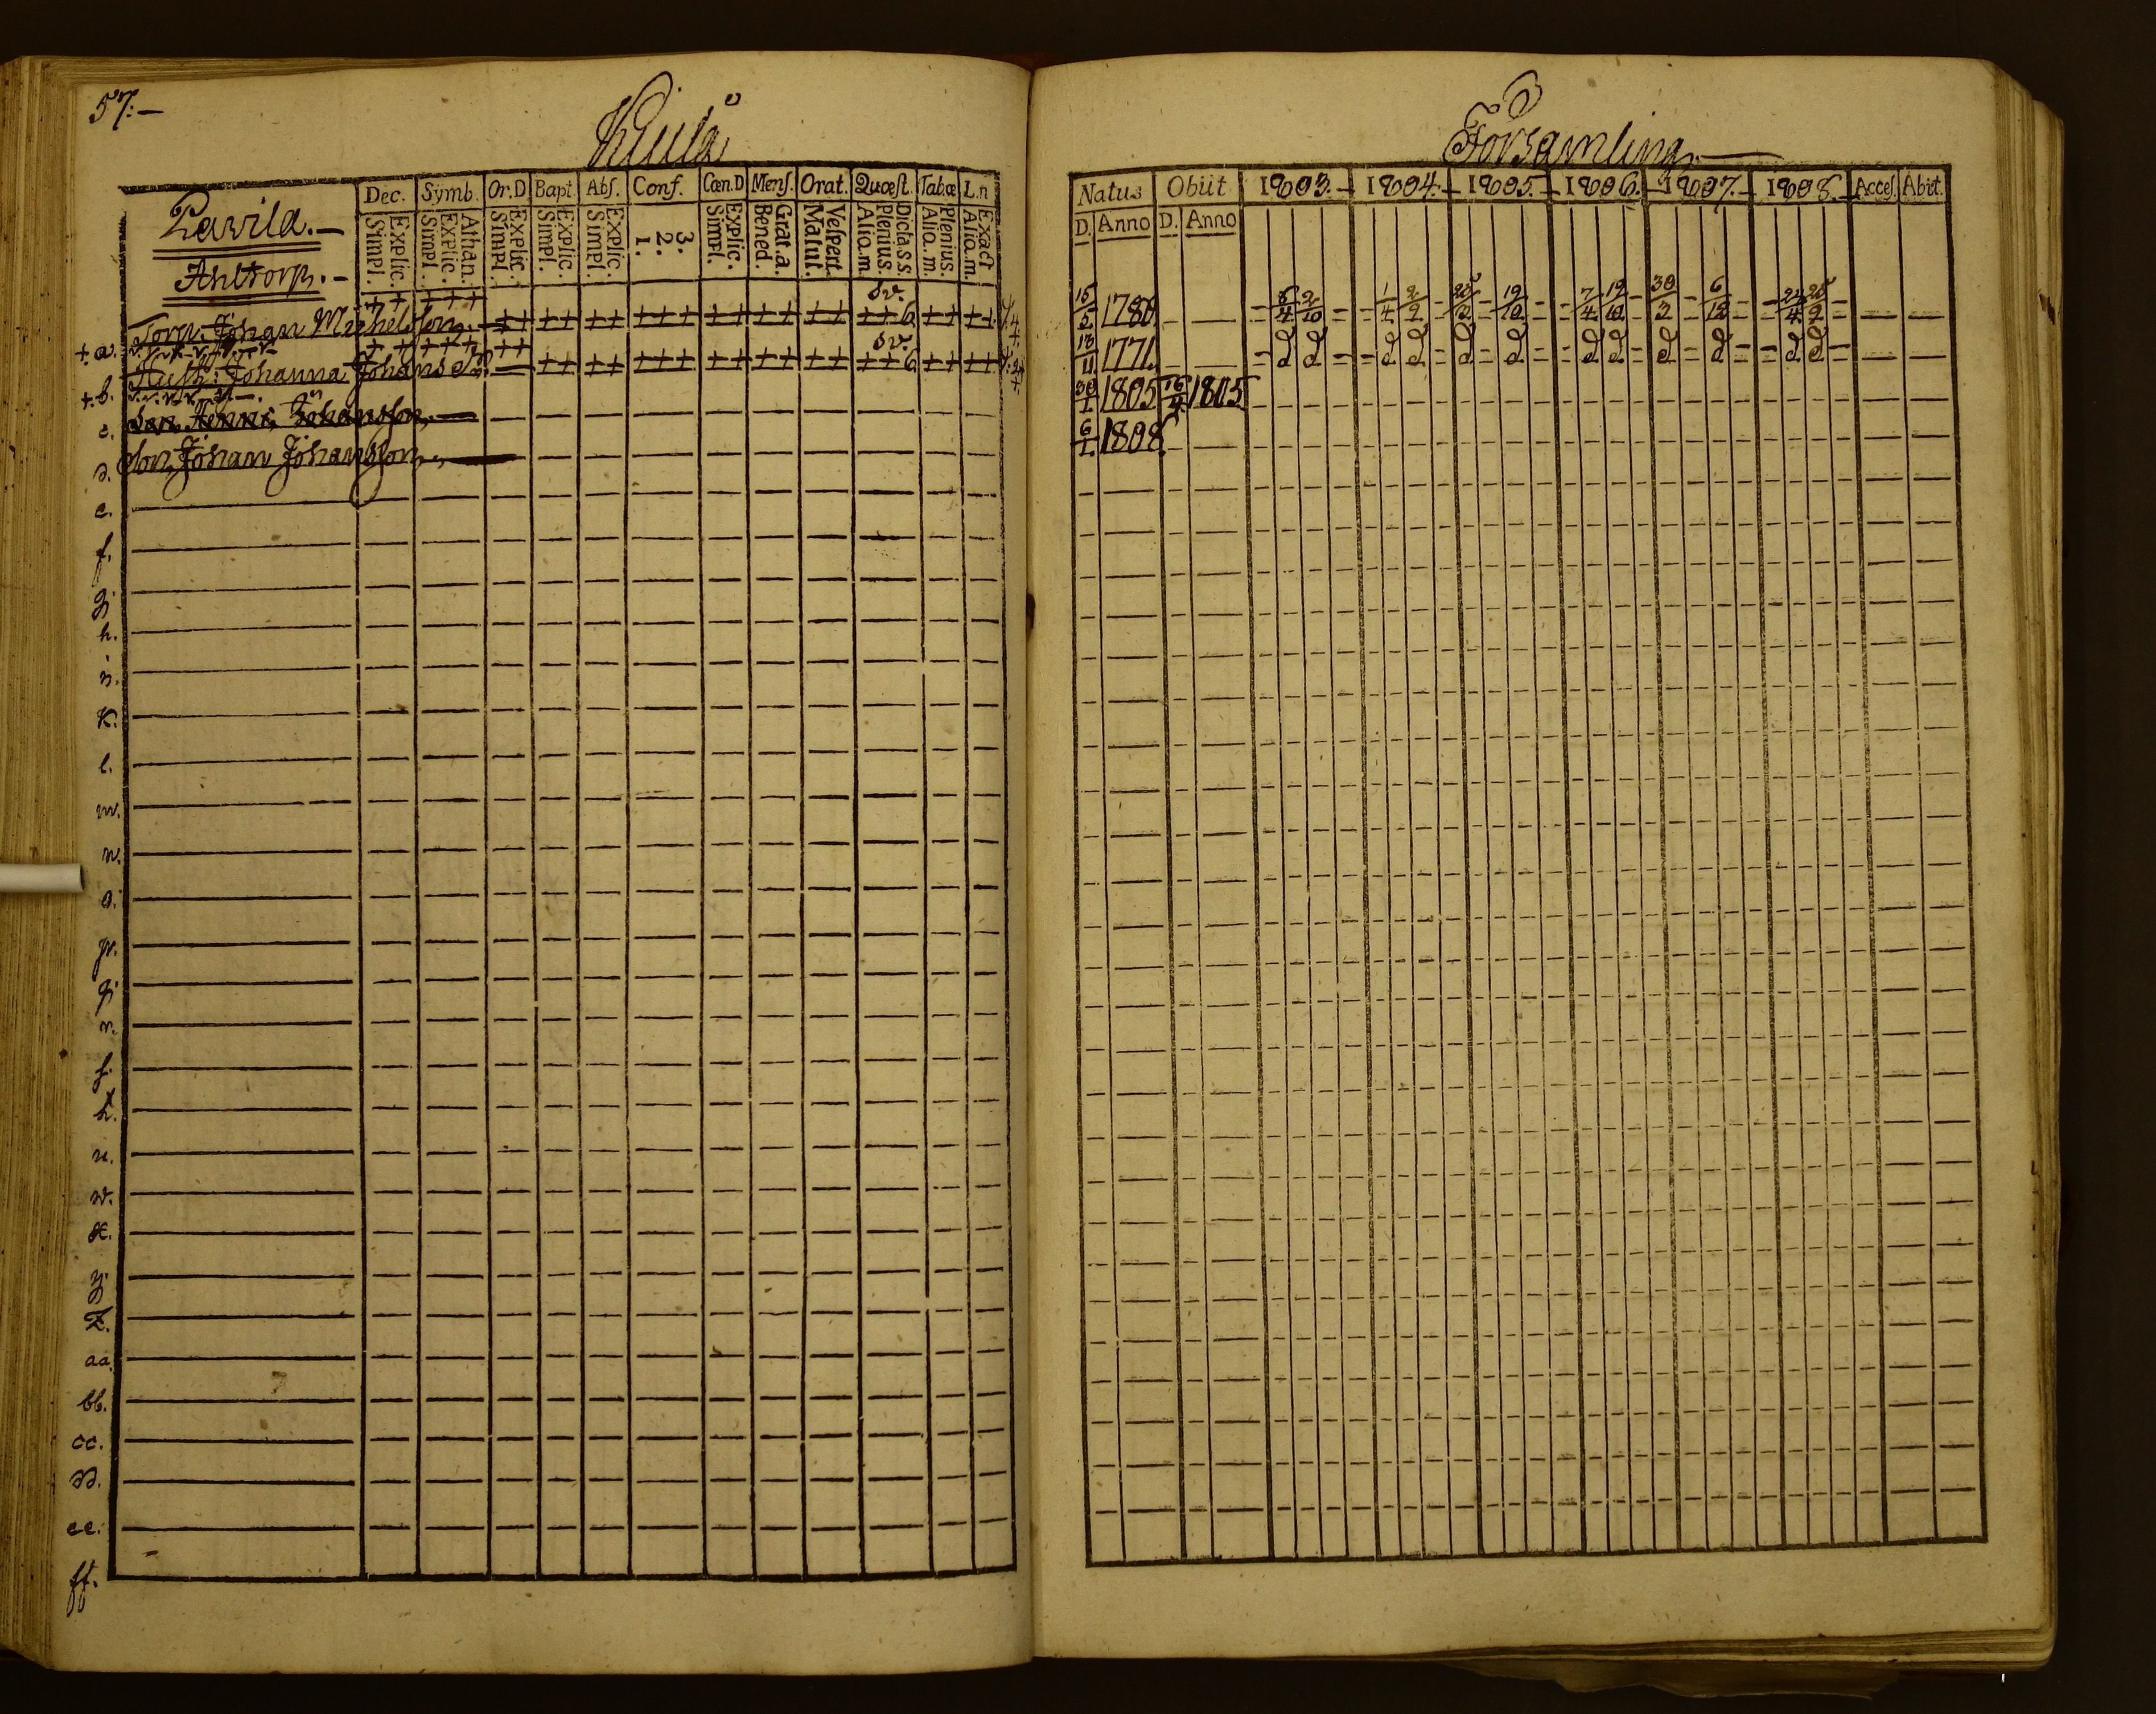 57.-
Kiula Församling.
Dec. Symb. Or.D Bapt. Abs. Conf. Cœn.D Mens. Orat. Quæst. Tabæ L.n
Natus Obiit 1803.- 1804.- 1805.- 1806.- 1807.- 1808.- Acces. Abiit.
Explic. Simpl. Athan. Explic. Simpl. Explic. Simpl. Explic. Simpl. Explic. Simpl. 3. 2. 1. Explic. Simpl. Grat.a. Bened. Vespert. Matut. Dicta.s.s. Plenius. Alia.m. Plenius. Alia.m. Exact Alia.m.
D. Anno D. Anno
Pavila.-
Ahltorp.-
+a. Torp. Johan Michelsson ++ +++ ++ ++ ++ +++ ++ ++ ++ Sv. ++6 ++ ++ 15/5 1780. 5/4 2/10 1/4 2/9 12/10 7/4 12/10 30/2 6/12
+.b. Hust: Johanna Johansdr. ++ +++ ++ ++ ++ +++ ++ ++ ++ Sv. ++6 ++ ++ 18/11 1771. d d d d d d d d d d d d
c. Son, Johansson, 30/1 1805 16/4 1805
d. Son, Johan Johansson, 6/1 1808.
e.
f.
g.
h.
i.
k.
l.
m.
n.
o.
p.
q.
r.
s.
t.
u.
w.
x.
y.
z.
aa.
bb.
cc.
dd.
ee.
ff.